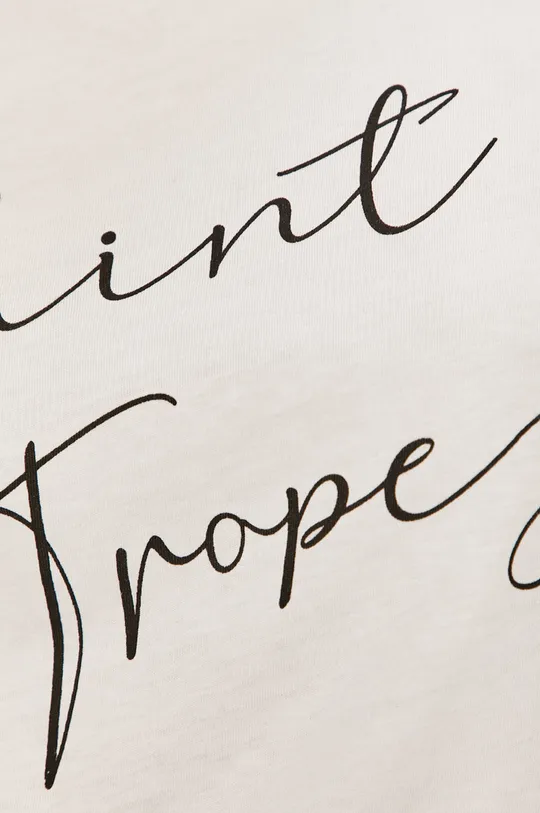 aint
Trope